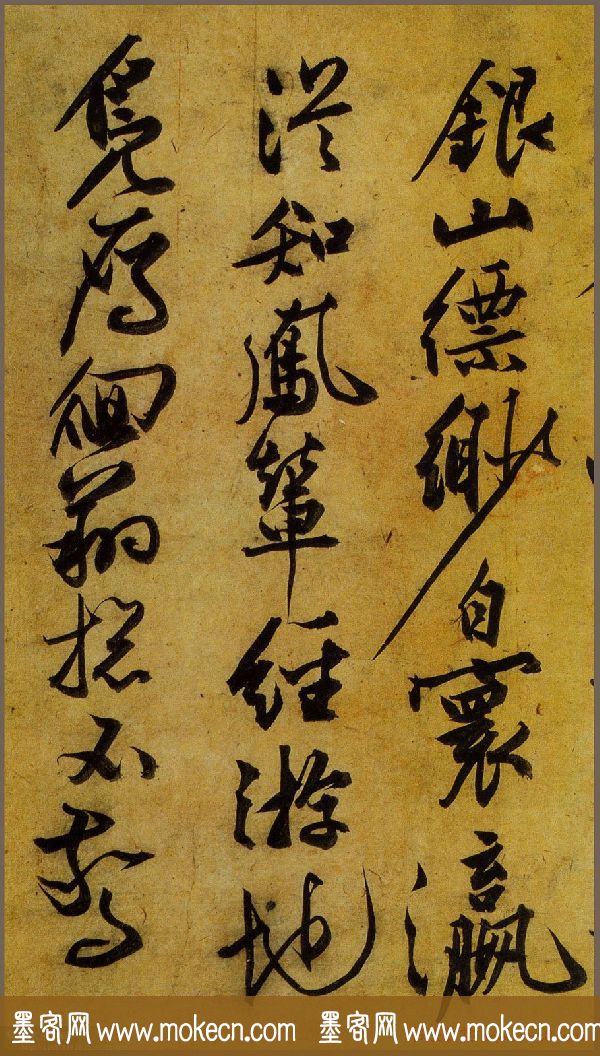 銀山縹緲自寰瀛
從知鳳輦經游地
鳧雁徊翔總不驚
墨客网 www.mokecn.com 墨客网 www.mokecn.com